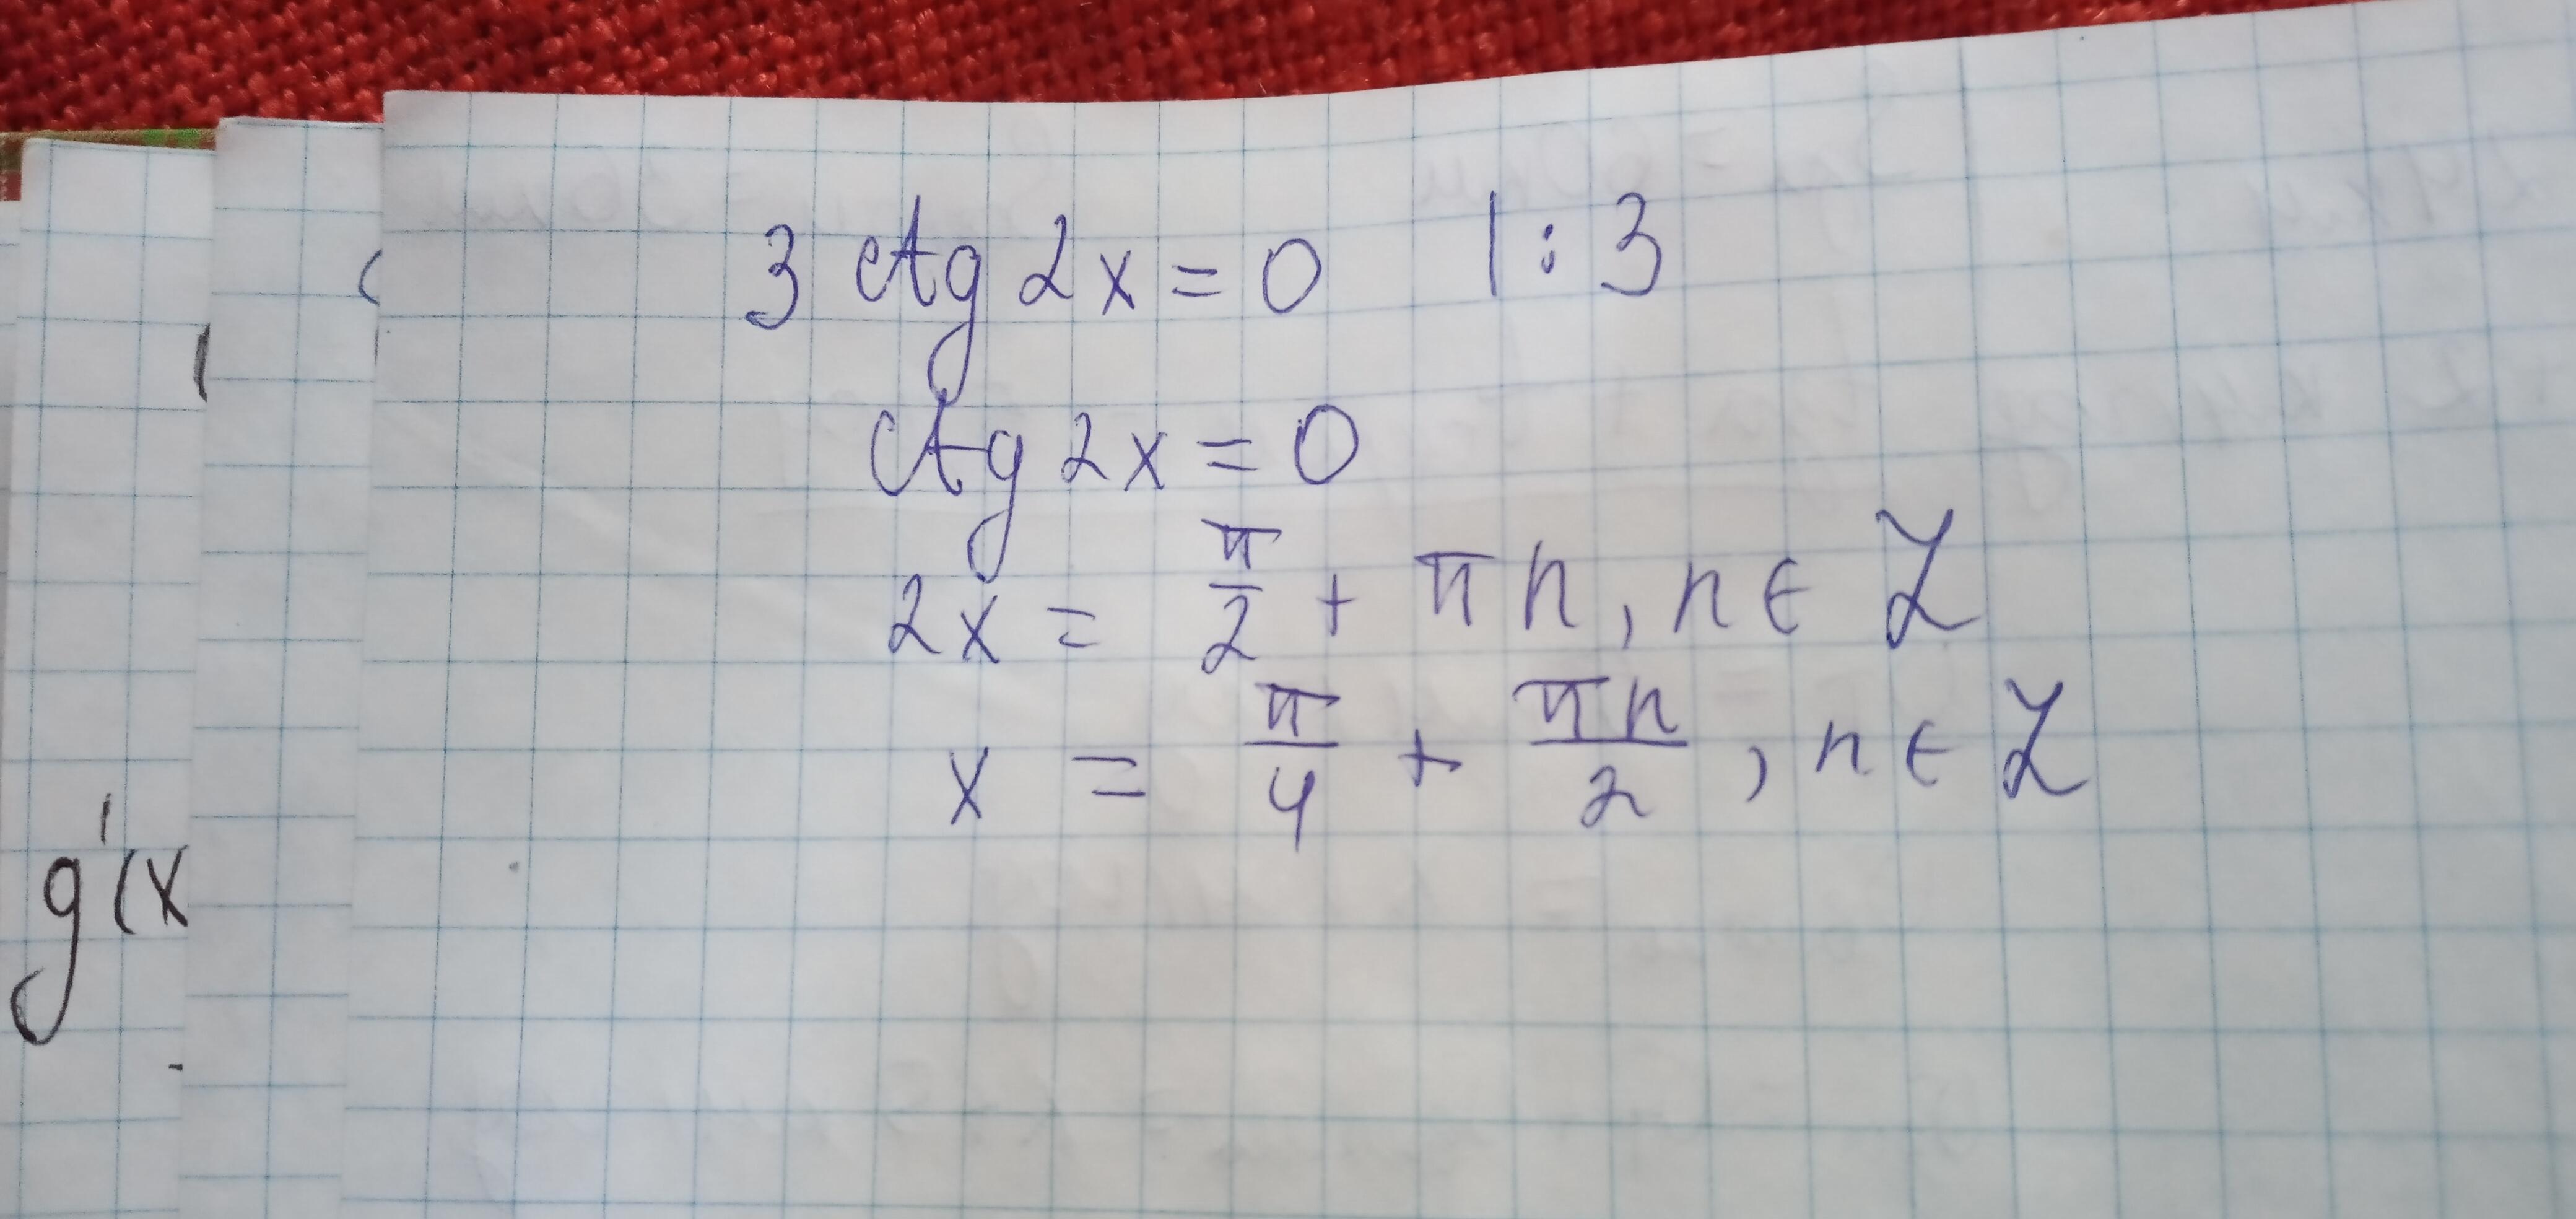 3 ctg 2x = 0 | : 3
ctg 2x = 0
2x = π/2 + πn, n ∈ Z
x = π/4 + πn/2, n ∈ Z
g'(x